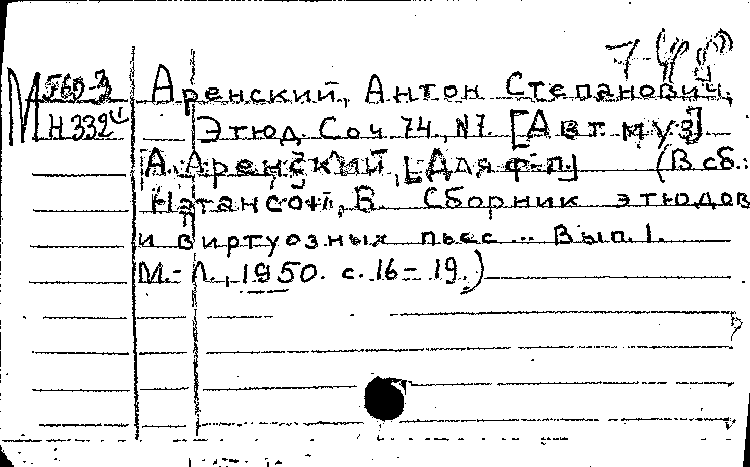 Аренский, Антон Степанович.
М П60-3
Н332 Этюд. Соч. 74, №7. [Авт. муз.]
А. Аренский, [Для ф.-п.] (В сб.:
Натансон, В. Сборник этюдов
и виртуозных пьес... Вып. 1.
М.-Л., 1950. с. 16-19.)